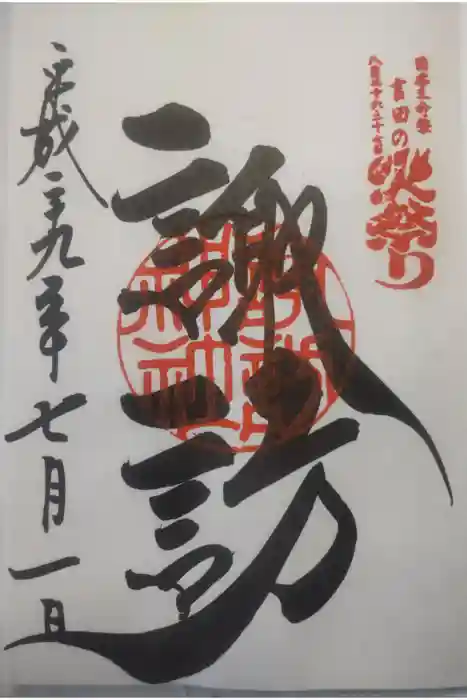 日本三奇祭
吉田の
火祭り
八月二十六二十七日
諏訪
諏訪
神社
平成二十九年七月一日